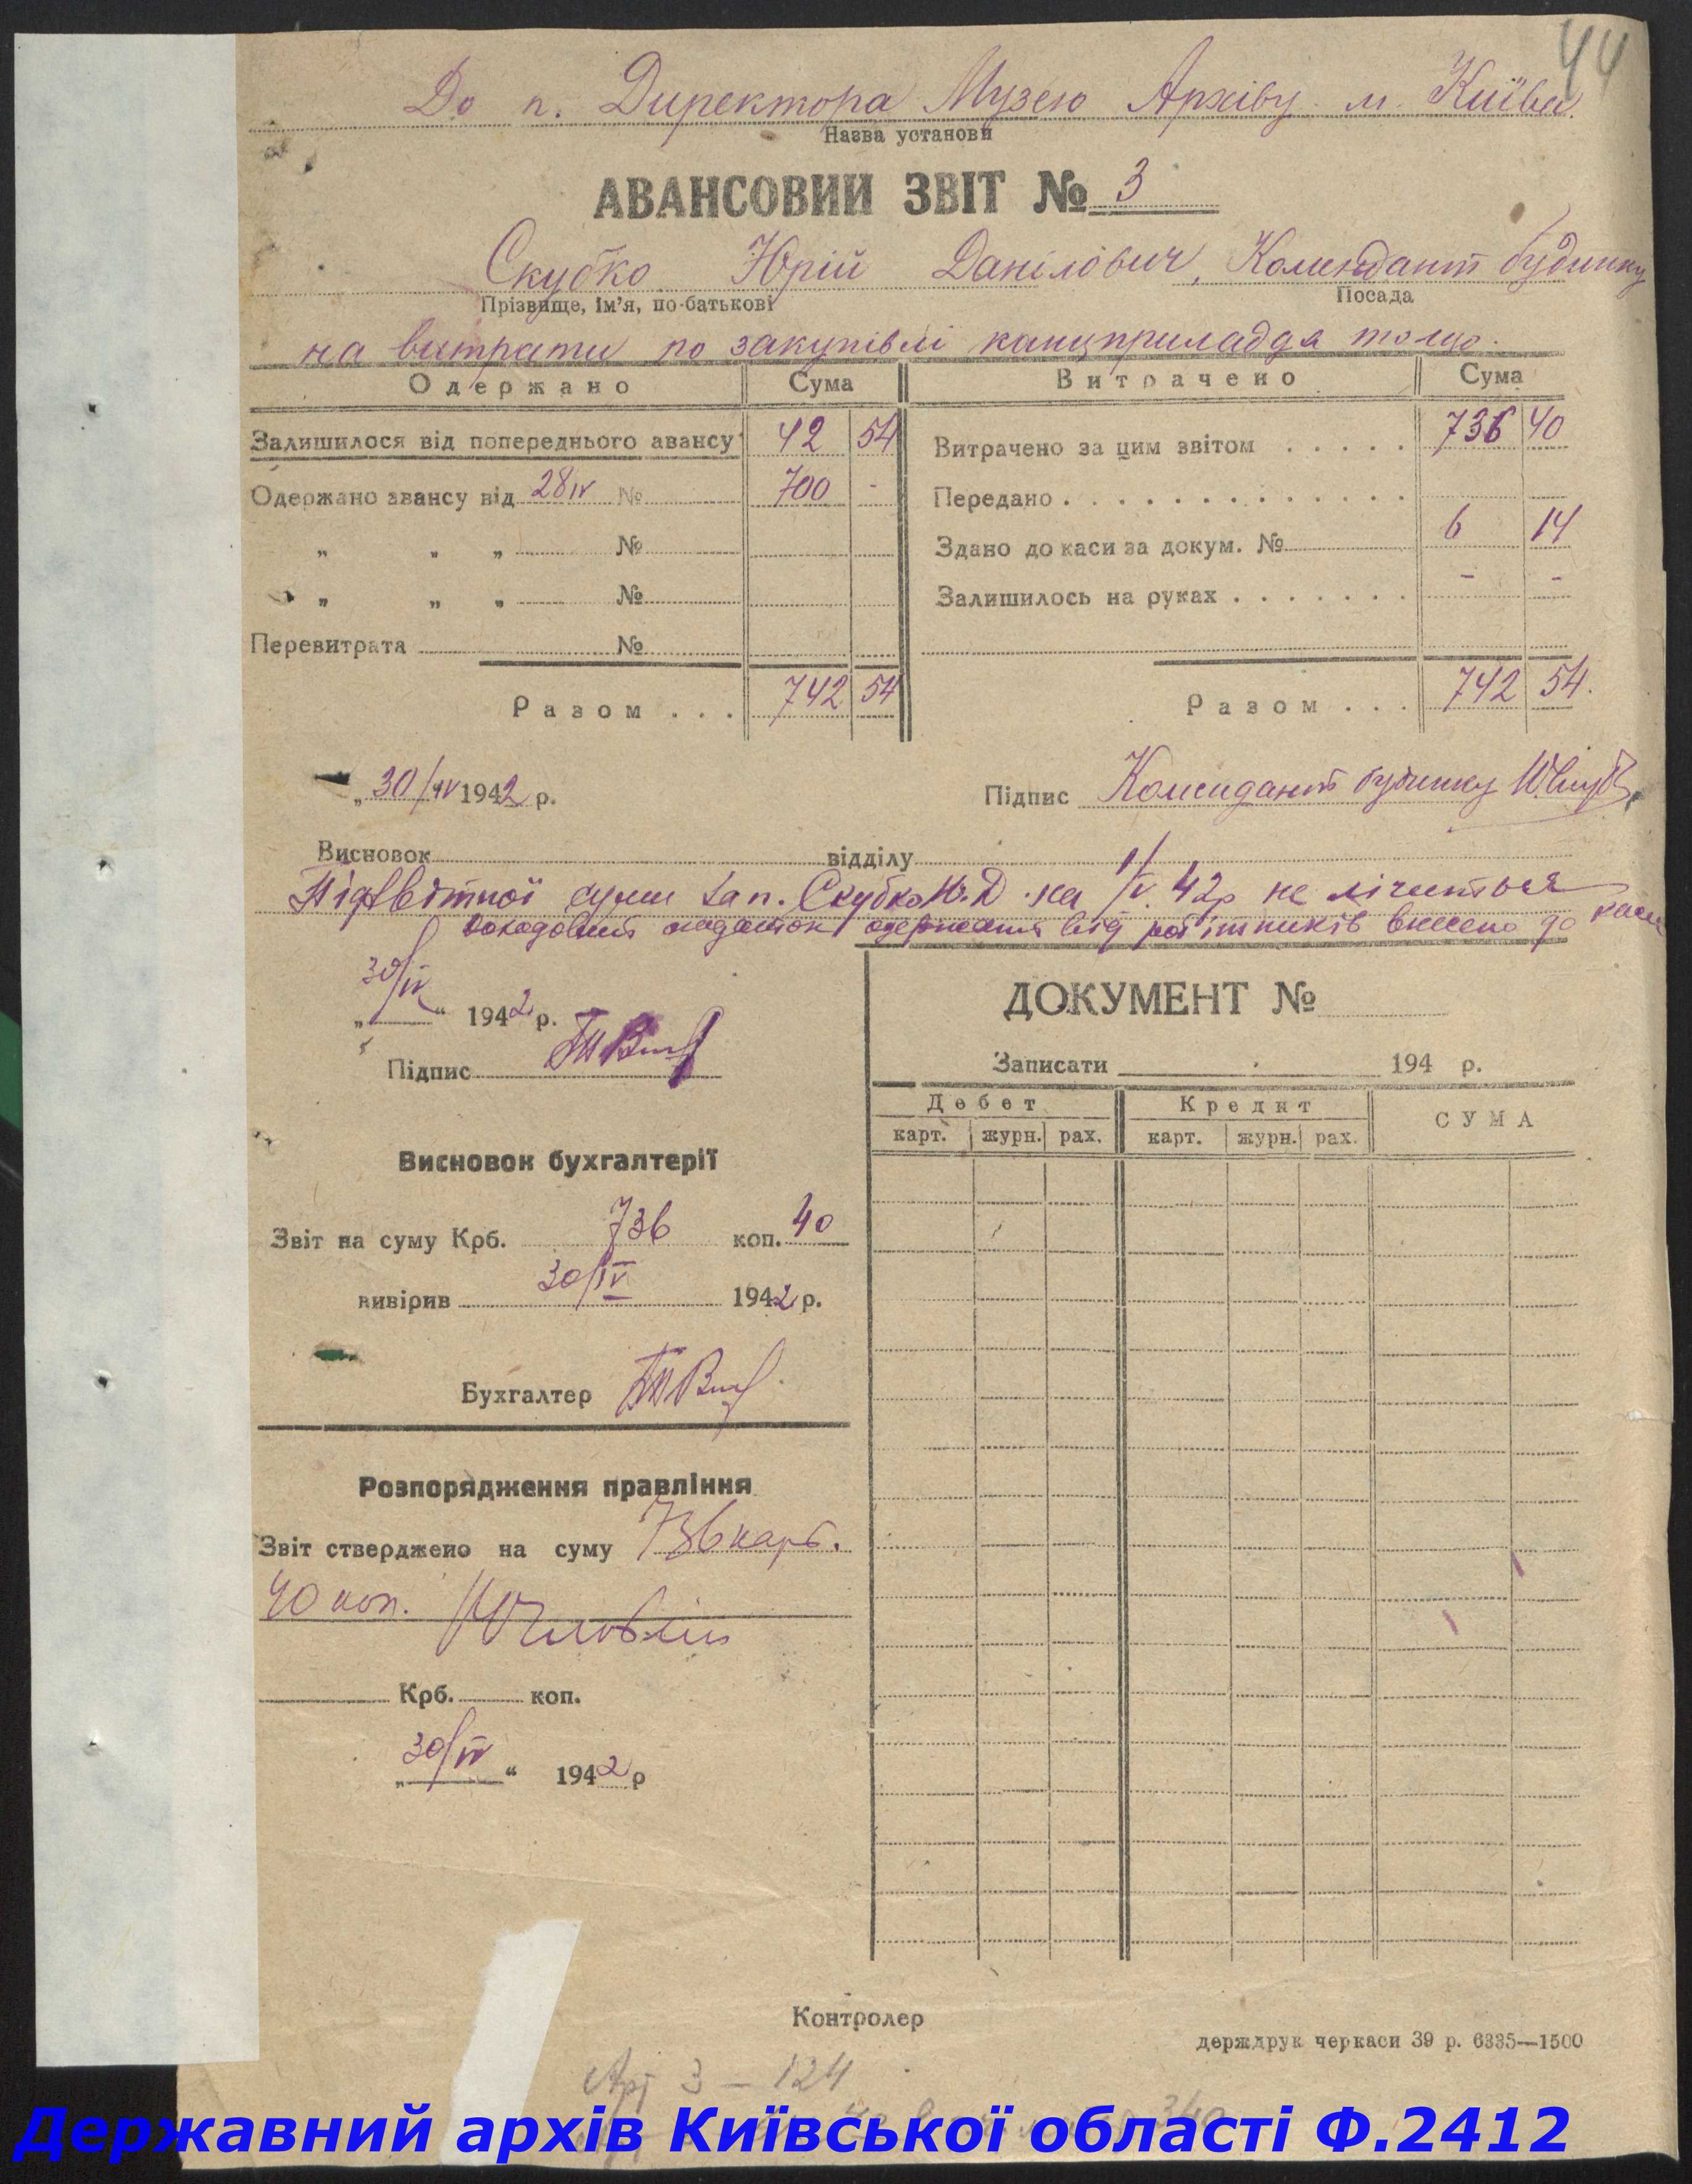 44
До п. Директора Музею Архіву м. Київа.
Назва установи
АВАНСОВИЙ ЗВІТ № 3
Скубко Юрій Данілович, Комендант будинку
Прізвище, ім'я, по-батькові Посада
на витрати по закупівлі канцприладдя тощо.
Одержано Сума Витрачено Сума
Залишилося від попереднього авансу 42 54 Витрачено за цим звітом . . . . . 736 40
Одержано авансу від 28 IV № 700 - Передано . . . . . . . . . . . . . .
„ „ „ № Здано до каси за докум. № 6 14
„ „ „ № Залишилось на руках . . . . . . . - -
Перевитрата №
Разом . . . 742 54 Разом . . . 742 54.
„ 30/IV 1942 р. Підпис Комендант будинку
Висновок відділу
Підзвітної суми за п. Скубко Ю.Д. на 1/V. 42р не лічиться
податок одержаний від робітників внесено до каси
„30/IV“ 1942 р.
Підпис
ДОКУМЕНТ №
Записати 194 р.
Дебет Кредит СУМА
карт. журн. рах. карт. журн. рах.
Висновок бухгалтерії
Звіт на суму Крб. 736 коп. 40
вивірив 30/IV 1942 р.
Бухгалтер
Розпорядження правління
Звіт стверджено на суму 736 карб.
40 коп.
Крб. коп.
„30/IV“ 1942 р
Контролер
держдрук черкаси 39 р. 6335—1500
Арт 3 — 124
Державний архів Київської області Ф.2412